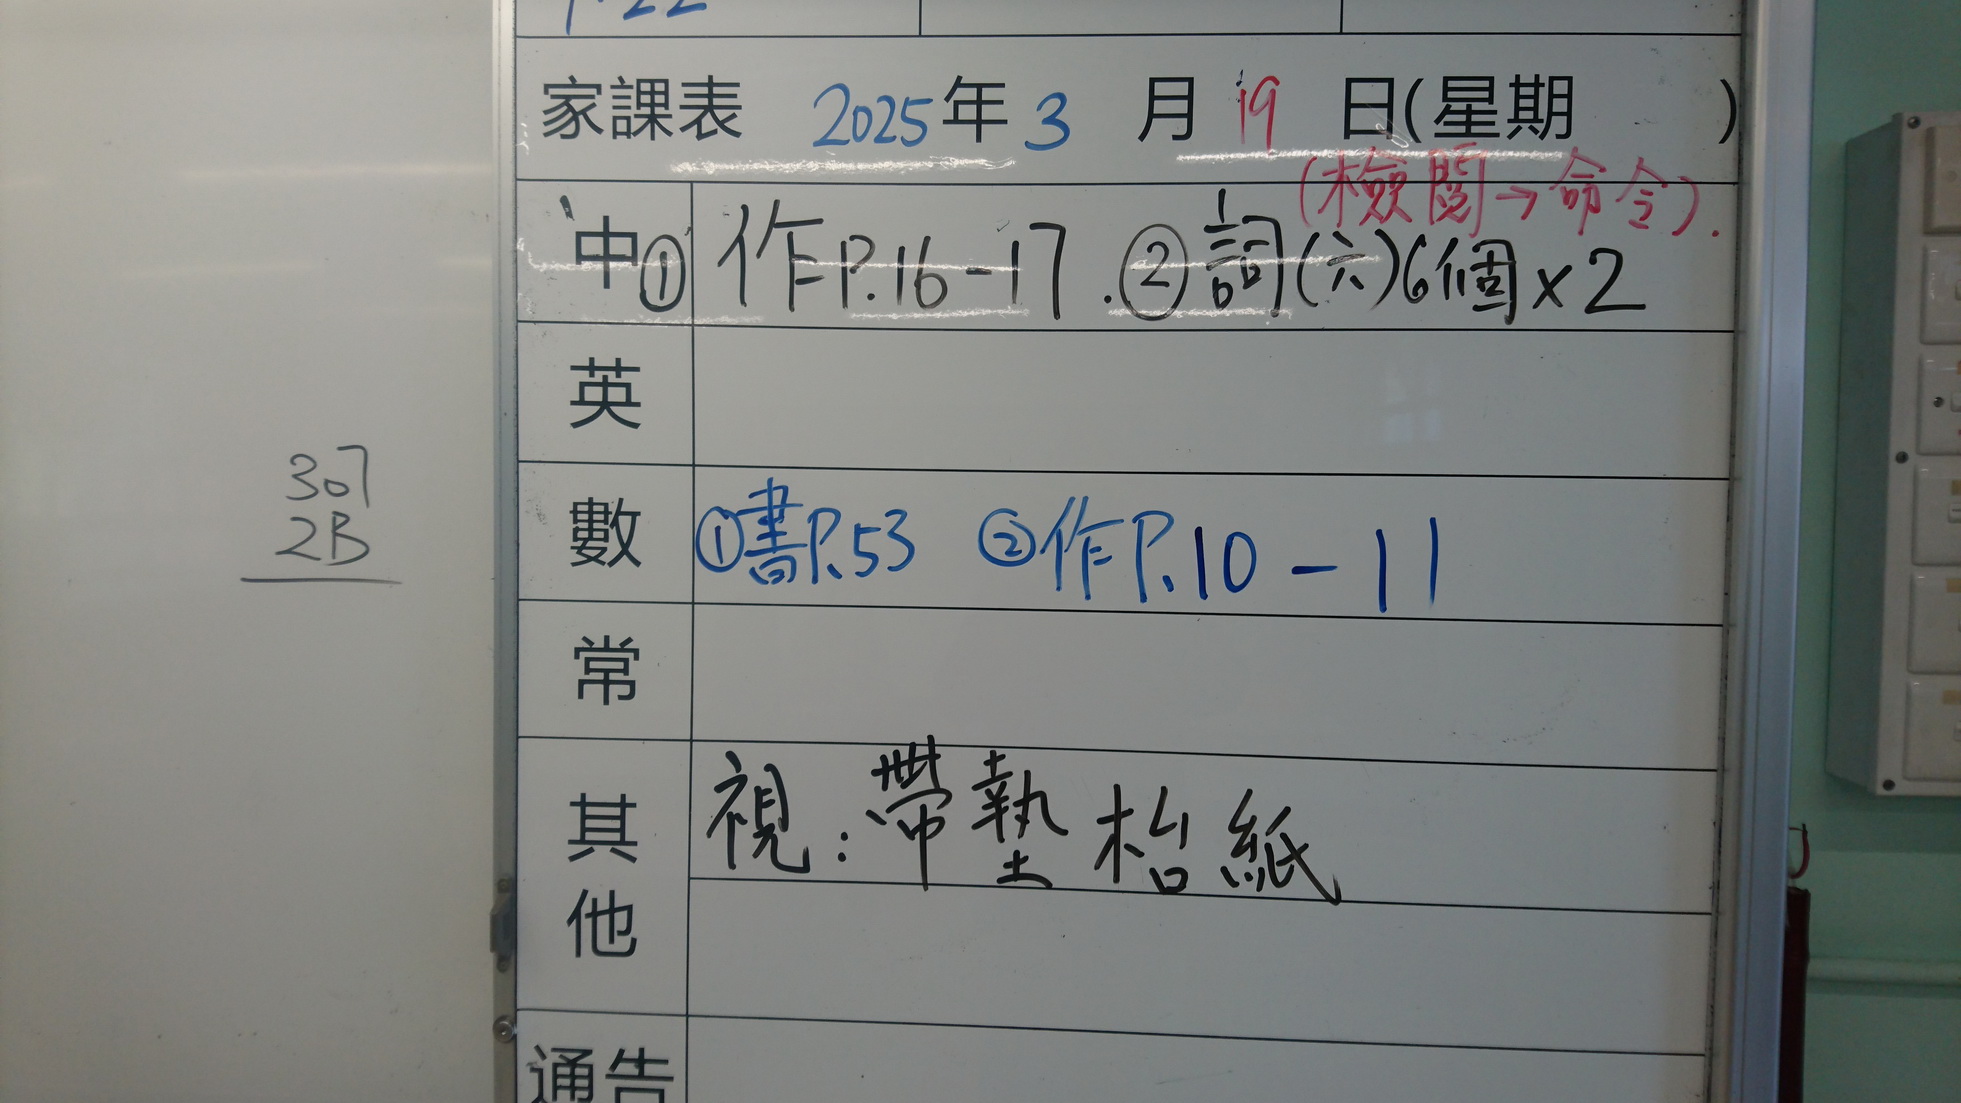 家課表 2025年3月19日(星期 )
(檢閱→命令).
中 ①作P.16-17.②詞(六)6個x2
英
數 ①書P.53 ②作P.10-11
常
其他 視:帶墊枱紙
通告
307
2B